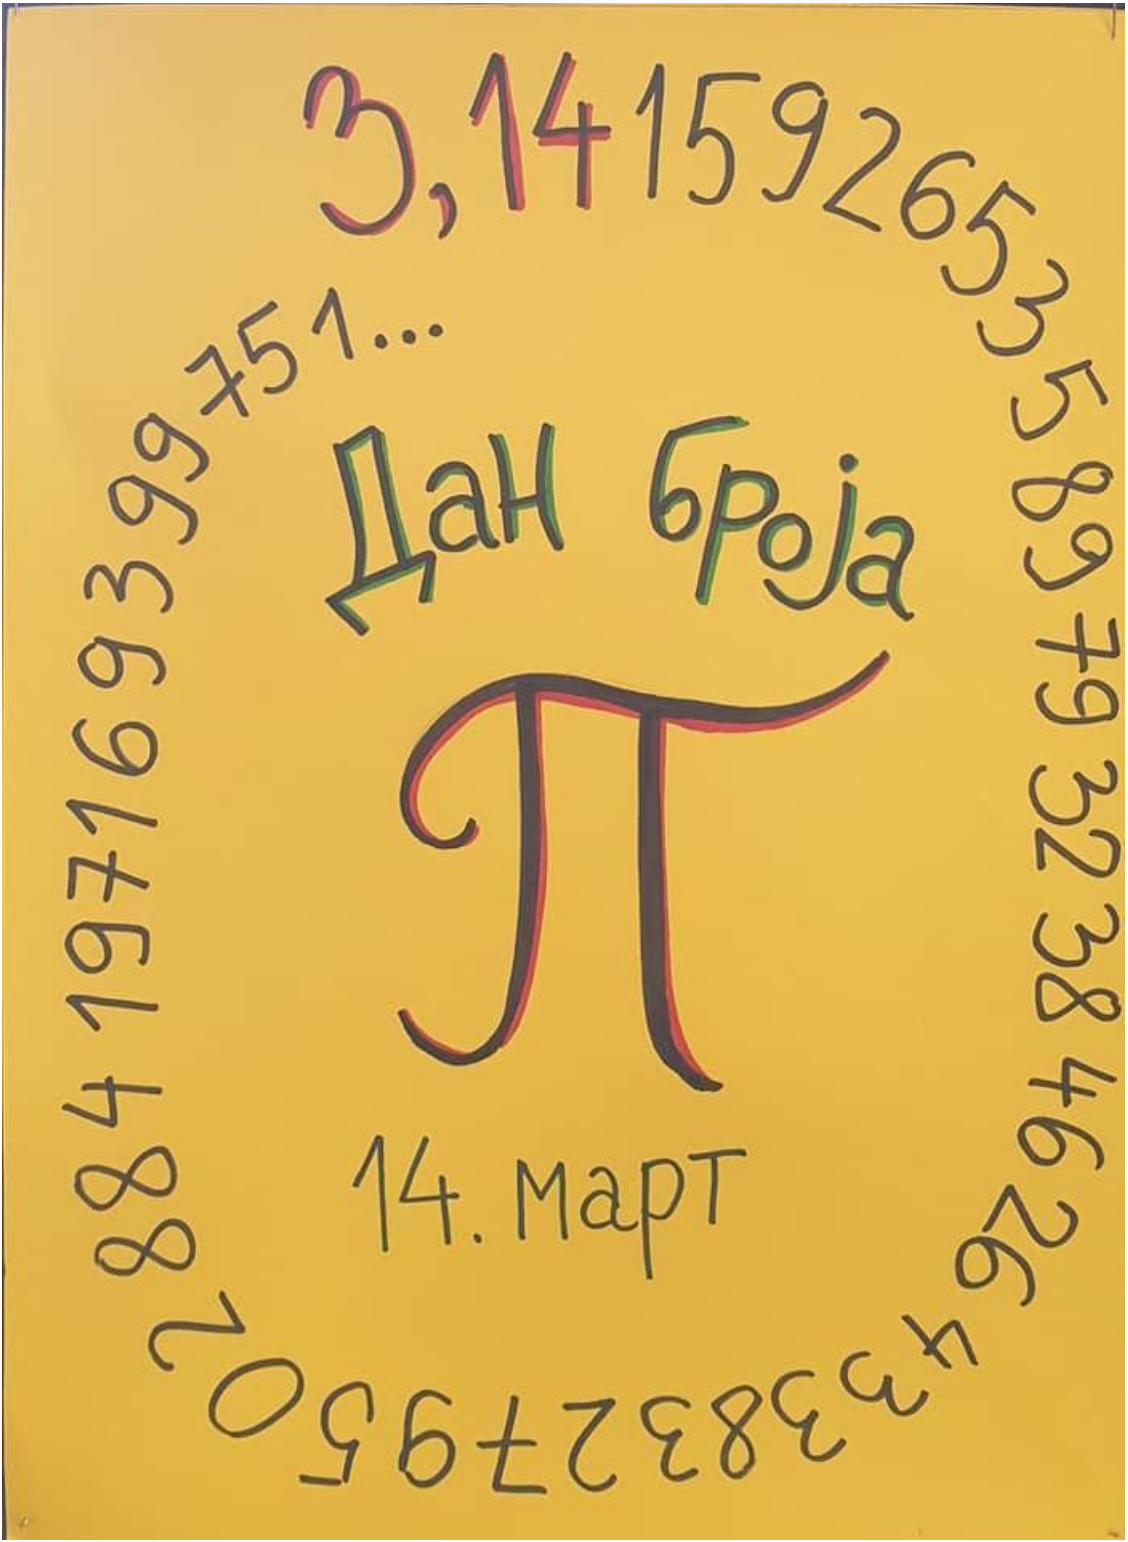 3,141592653589793238462643383279502884197169399751...
Дан броја
π
14. март